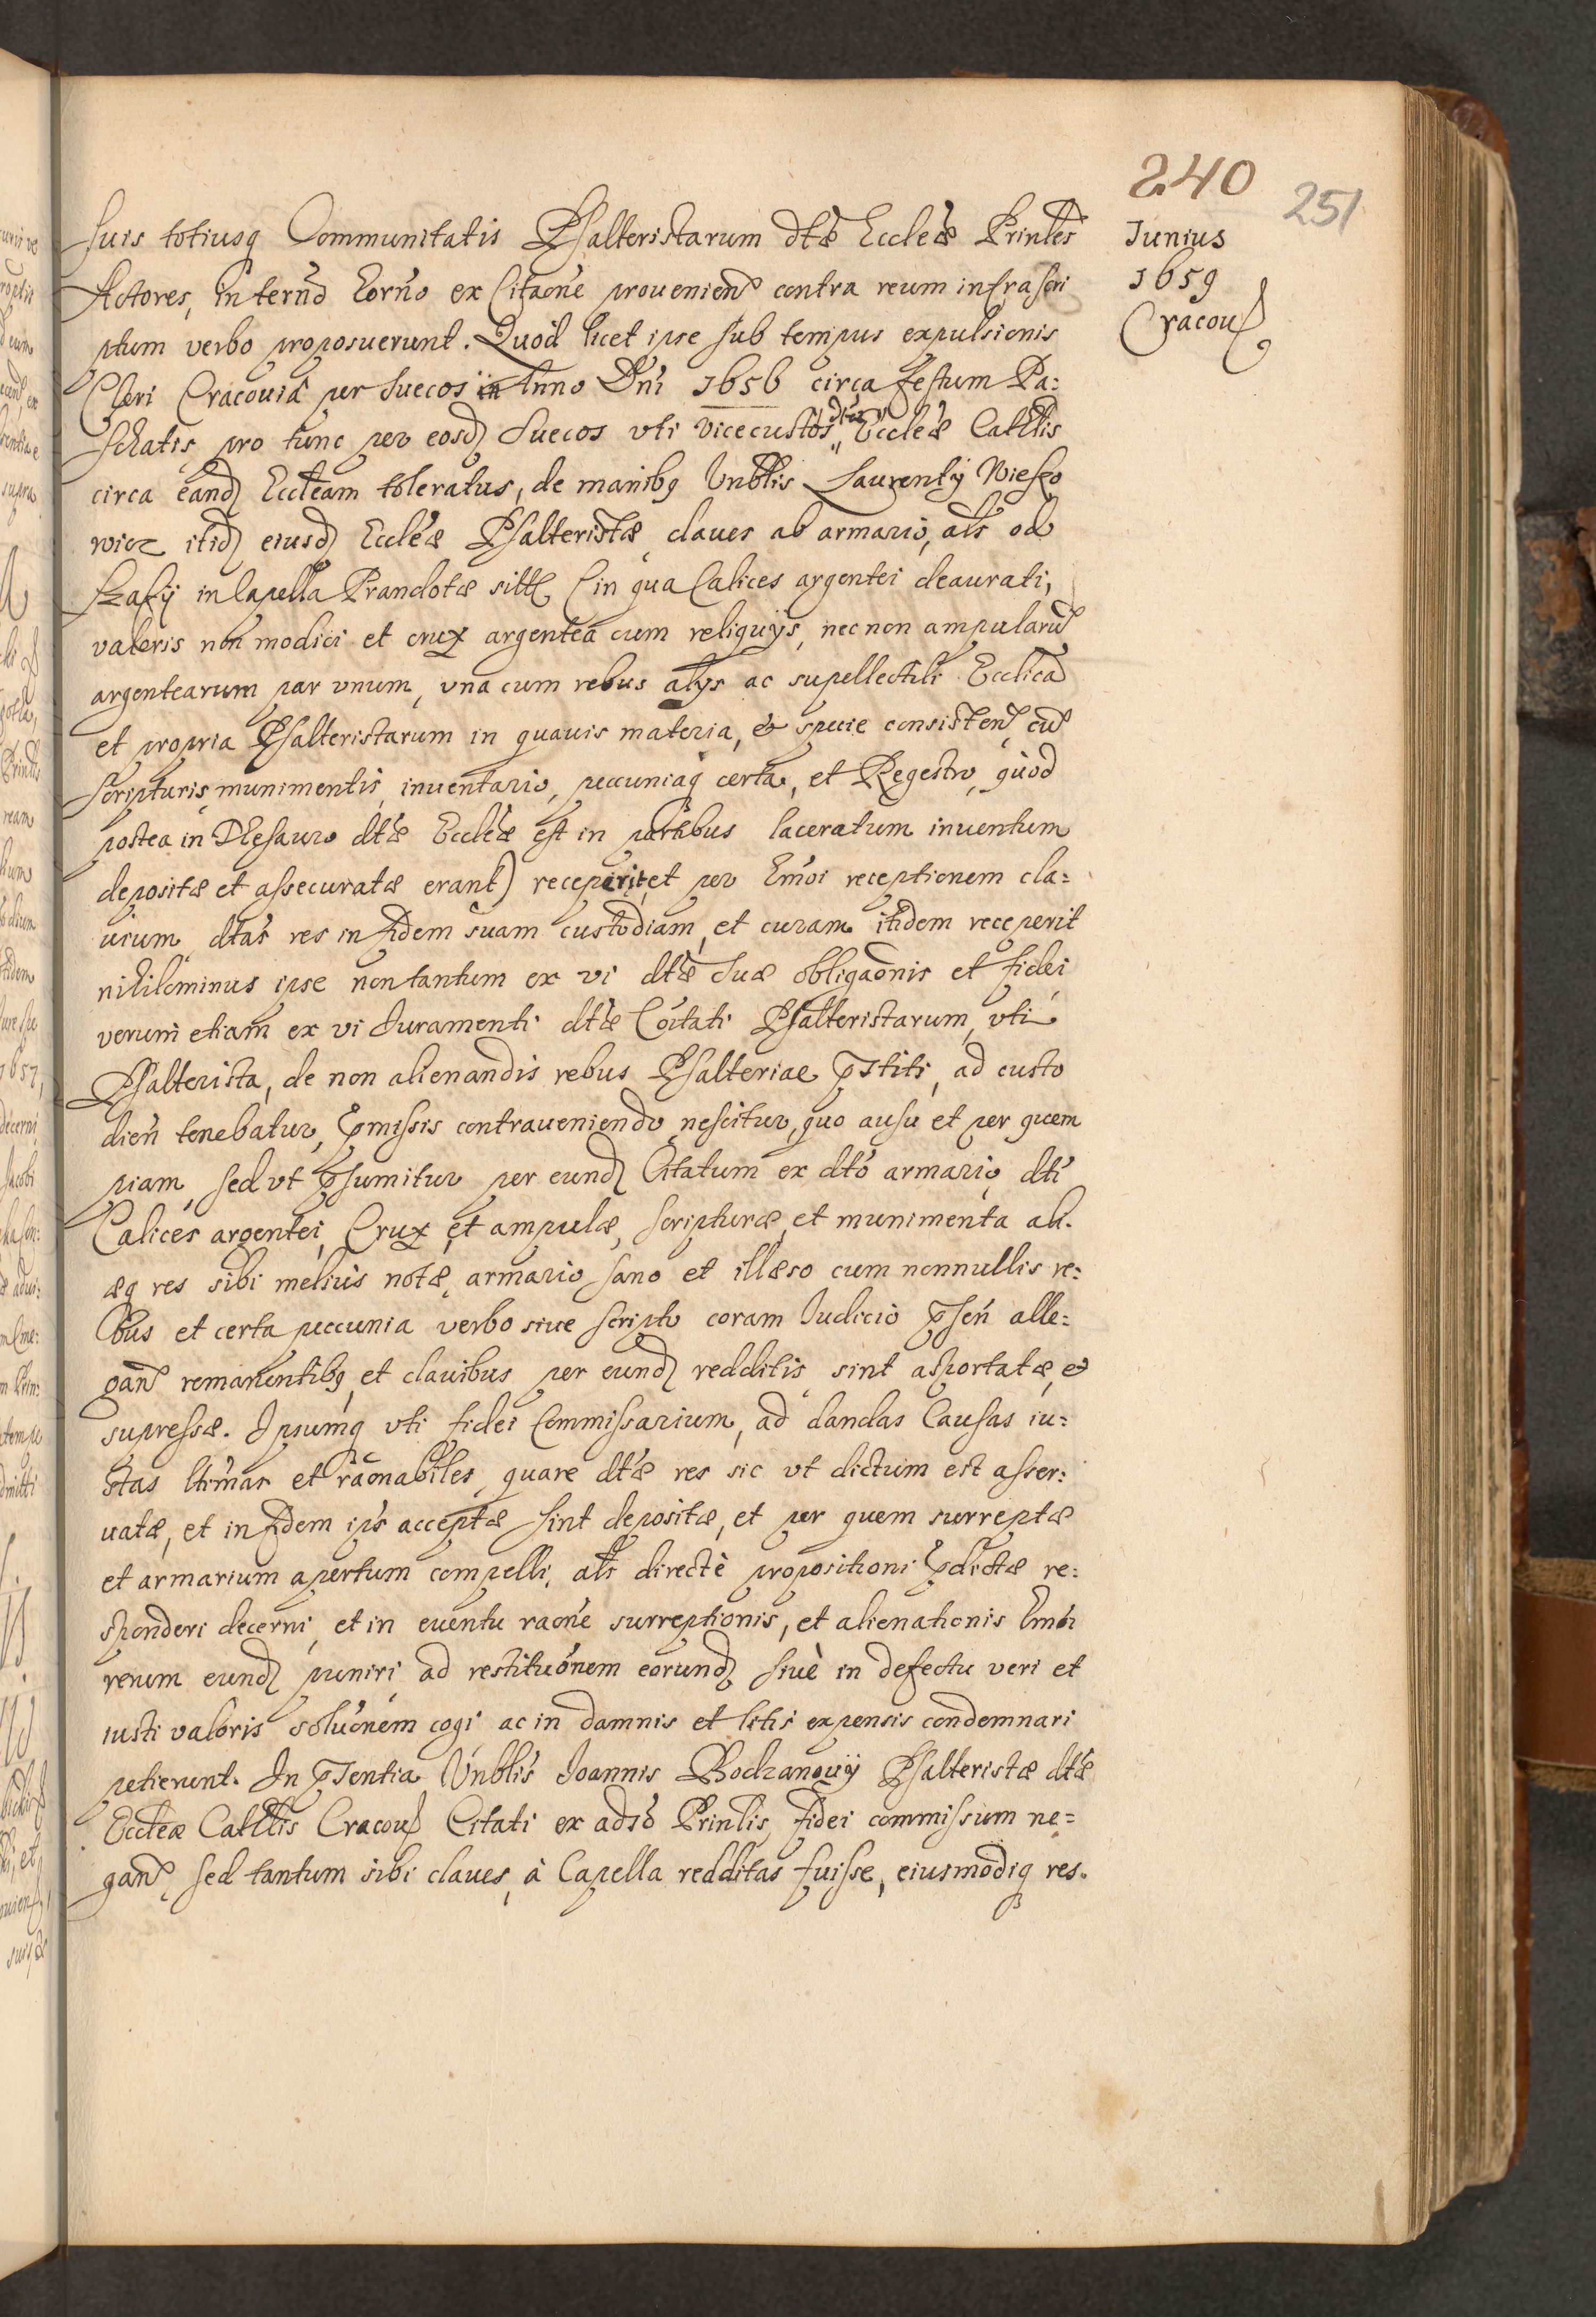 240
251
Junius
1659
Cracou
suis totiusq Communitatis Psalteristarum dtæ Eccleæ Prinles
Actores, in termo Eorno ex Citaone prouenien contra reum infrascri
ptum verbo proposuerunt. Quod licet ipse sub tempus expulsionis
Cleri Cracouia per Suecos in Anno Dni 1656 circa festum Pa:
schatis pro tunc per eosd Suecos vti vicecustos dtæ Eccleæ Cathlis
circa eand Eccleam toleratus, de manibq Vnblis Laurentij Wiesko
wicz itid eiusd Eccleæ Psalteristæ claues ab armario, als od
szafij in Capella Prandotæ sitt (in qua Calices argentei deaurati,
valoris non modici et crux argentea cum reliquijs, nec non ampularu
argentearum par vnum, vna cum rebus alijs ac supellectili Ecclica
et propria Psalteristarum in quauis materia, & specie consisten, cu
scripturis munimentis, inuentario, pecuniaq certa, et Regestro, quod
postea in Thesauro dtæ Eccleæ est in partibus laceratum inuentum
depositæ et assecuratæ erant) receperit, et per Emoi receptionem cla:
uium dtas res in fidem suam custodiam, et curam itidem receperit
nihilominus ipse non tantum ex vi dtæ suæ obligaonis et fidei
verum etiam ex vi Juramenti dtæ Coitati Psalteristarum, vti
Psalterista, de non alienandis rebus Psalteriae pstiti, ad custo
dien tenebatur, pmissis contraueniendo nescitur, quo ausu et per quem
piam, sed vt psumitur per eund Citatum ex dto armario dti
Calices argentei, Crux et ampulæ, scripturæ, et munimenta ali-
æq res sibi melius notæ, armario sano et illæso cum nonnullis re:
bus et certa pecunia verbo siue scripto coram Judicio psen alle:
gan remanentibq et clauibus per eund redditis sint asportatæ, &
supressæ. Ipsumq vti fidei Commissarium, ad dandas Causas iu:
stas ltimas et raonabiles, quare dtæ res sic vt dictum est asser:
uatæ, et in fidem ips acceptæ sint depositæ, et per quem surreptæ
et armarium apertum compelli, als directè propositioni pdictæ re:
sponderi decerni, et in euentu raone surreptionis, et alienationis Emoi
rerum eund puniri ad restituonem eorund siuè in defectu veri et
iusti valoris soluonem cogi ac in damnis et litis expensis condemnari
petierunt. In pntia Vnblis Joannis Bochanouij Psalteristæ dtæ
Eccleæ Cathlis Cracou Citati ex adso Prinlis, fidei commissum ne=
gan, sed tantum sibi claues, à Capella redditas fuisse, eiusmodiq res.